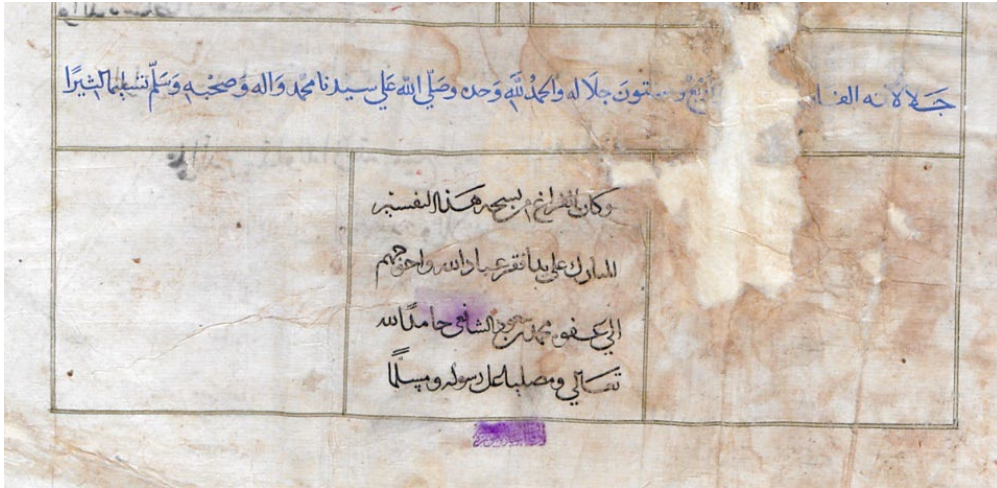 جلالاته وستون جلاله والحمد لله وحده وصلى الله على سيدنا محمد واله وصحبه وسلم تسليما كثيرا
وكان الفراغ من نسخه هذا التفسير
المبارك على يد افقر عباد الله واحوجهم
الى عفوه محمد بن الشافعي حامدا لله
تعالى ومصليا على رسوله ومسلما